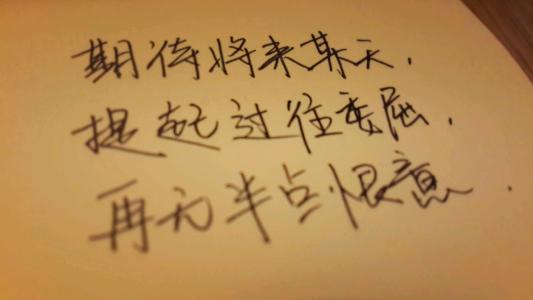 期待将来某天.
提起过往委屈.
再无半点恨意.